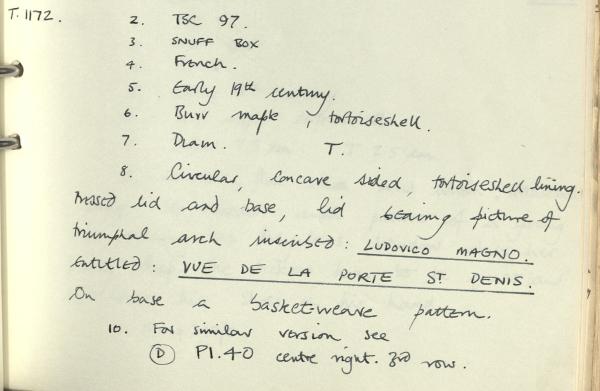 T.1172.
2. TSC 97.
3. SNUFF BOX
4. French.
5. Early 19th century.
6. Burr maple, tortoiseshell.
7. Diam. T.
8. Circular, concave sided, tortoiseshell lining.
Pressed lid and base, lid bearing picture of
triumphal arch inscribed: LUDOVICO MAGNO.
Entitled: VUE DE LA PORTE ST DENIS.
On base a basket-weave pattern.
10. For similar version, see
D Pl.40 centre right. 3rd row.